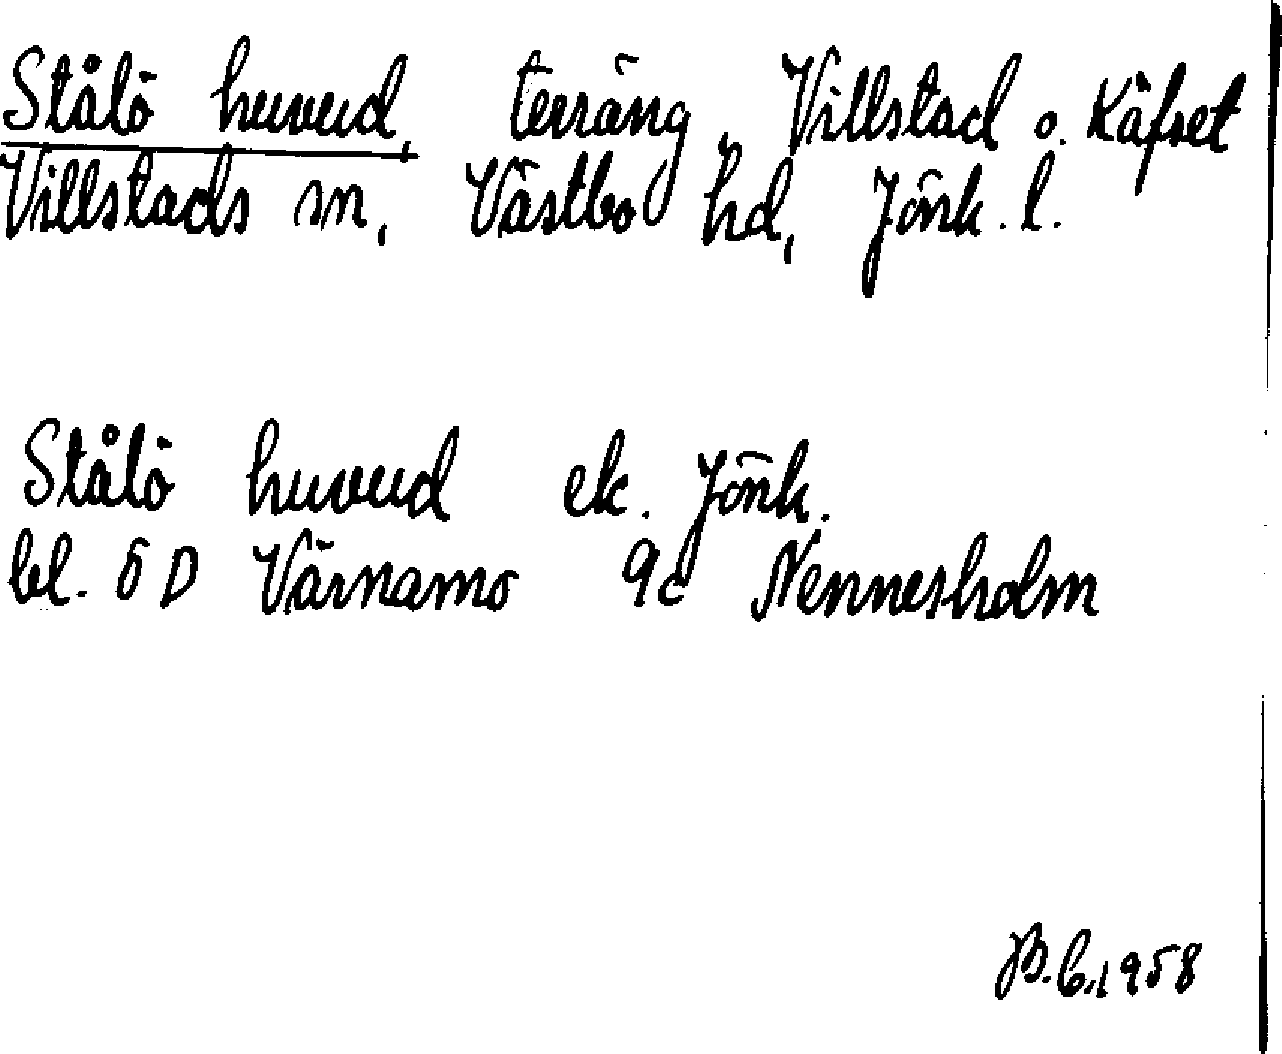 Stålö huvud, terräng, Villstad o. Käfset
Villstads sn, Västbo hd, Jönk. l.
Stålö huvud ek. Jönk.
bl. 5 D Värnamo 9c Nennesholm
B.C. 1958